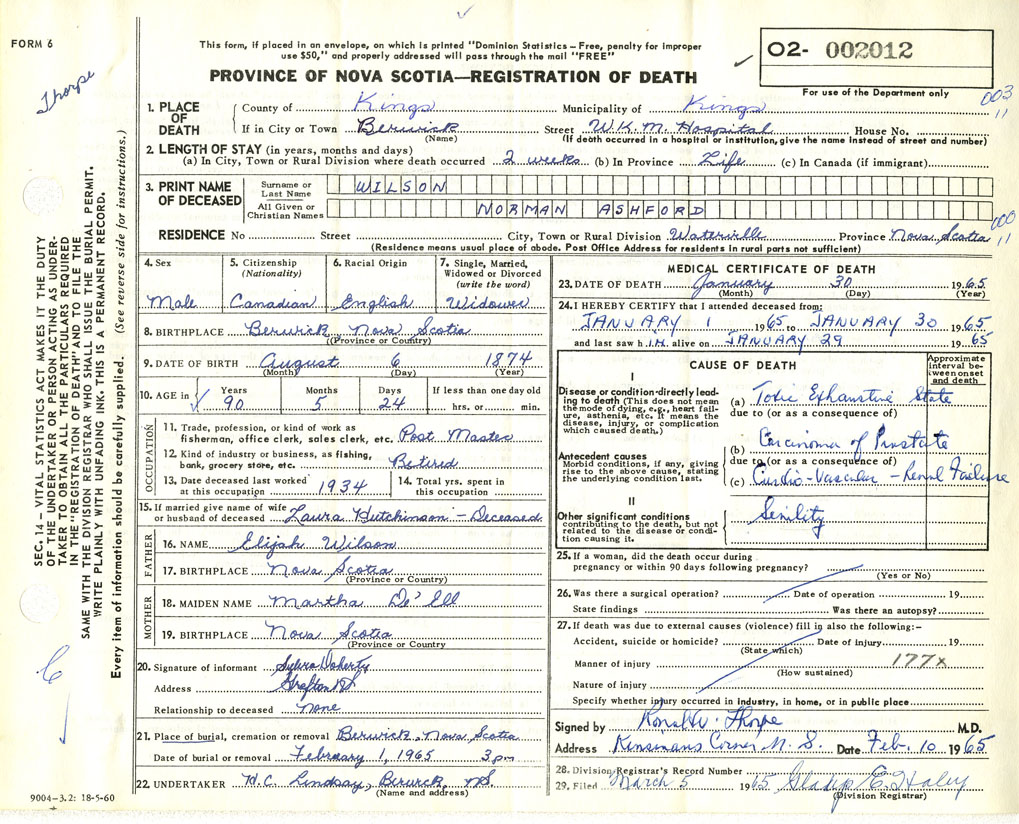 FORM 6
This form, if placed in an envelope, on which is printed "Dominion Statistics – Free, penalty for improper
use $50," and properly addressed will pass through the mail "FREE"
PROVINCE OF NOVA SCOTIA—REGISTRATION OF DEATH
02- 002012
For use of the Department only
003
11
Thorpe
1. PLACE OF DEATH
County of Kings Municipality of Kings
If in City or Town Berwick Street W.K.M. Hospital House No.
(Name) (If death occurred in a hospital or institution, give the name instead of street and number)
2. LENGTH OF STAY (in years, months and days)
(a) In City, Town or Rural Division where death occurred 2 weeks (b) In Province Life (c) In Canada (if immigrant)
3. PRINT NAME OF DECEASED
Surname or Last Name WILSON
All Given or Christian Names NORMAN ASHFORD
000
11
RESIDENCE No Street City, Town or Rural Division Waterville Province Nova Scotia
(Residence means usual place of abode. Post Office Address for residents in rural parts not sufficient)
4. Sex
Male
5. Citizenship
(Nationality)
Canadian
6. Racial Origin
English
7. Single, Married,
Widowed or Divorced
(write the word)
Widower
8. BIRTHPLACE Berwick Nova Scotia
(Province or Country)
9. DATE OF BIRTH August 6 1874
(Month) (Day) (Year)
10. AGE in
Years Months Days If less than one day old
90 5 24 hrs. or min.
OCCUPATION
11. Trade, profession, or kind of work as
fisherman, office clerk, sales clerk, etc. Post Master
12. Kind of industry or business, as fishing,
bank, grocery store, etc. Retired
13. Date deceased last worked
at this occupation 1934
14. Total yrs. spent in
this occupation
15. If married give name of wife
or husband of deceased Laura Hutchinson – Deceased
FATHER
16. NAME Elijah Wilson
17. BIRTHPLACE Nova Scotia
(Province or Country)
MOTHER
18. MAIDEN NAME Martha De' Ell
19. BIRTHPLACE Nova Scotia
(Province or Country
20. Signature of informant Doherty
Address Grafton NS
Relationship to deceased none
21. Place of burial, cremation or removal Berwick, Nova Scotia
Date of burial or removal February 1, 1965 3 pm
22. UNDERTAKER W.C. Lindsay, Berwick, N.S.
(Name and address)
MEDICAL CERTIFICATE OF DEATH
23. DATE OF DEATH January 30 1965
(Month) (Day) (Year)
24. I HEREBY CERTIFY that I attended deceased from:
JANUARY 1 1965 to JANUARY 30 1965
and last saw him alive on JANUARY 29 1965
CAUSE OF DEATH
Approximate
interval be-
tween onset
and death
I
Disease or condition directly lead-
ing to death (This does not mean
the mode of dying, e.g., heart fail-
ure, asthenia, etc. It means the
disease, injury, or complication
which caused death.)
(a) Toxic Exhaustive State
due to (or as a consequence of)
Antecedent causes
Morbid conditions, if any, giving
rise to the above cause, stating
the underlying condition last.
(b) Carcinoma of Prostate
due to (or as a consequence of)
(c) Cardio-Vascular – Renal Failure
II
Other significant conditions
contributing to the death, but not
related to the disease or condi-
tion causing it.
Senility
25. If a woman, did the death occur during
pregnancy or within 90 days following pregnancy?
(Yes or No)
26. Was there a surgical operation? Date of operation 19
State findings Was there an autopsy?
27. If death was due to external causes (violence) fill in also the following:-
Accident, suicide or homicide? Date of injury 19
(State which)
Manner of injury 177x
(How sustained)
Nature of injury
Specify whether injury occurred in industry, in home, or in public place
Signed by Ronald W. Thorpe M.D.
Address Kinsmans Corner N.S. Date Feb. 10 1965
28. Division Registrar's Record Number
29. Filed March 5 1965 Gladys E. Haley
(Division Registrar)
SEC. 14—VITAL STATISTICS ACT MAKES IT THE DUTY
OF THE UNDERTAKER OR PERSON ACTING AS UNDER-
TAKER TO OBTAIN ALL THE PARTICULARS REQUIRED
IN THE "REGISTRATION OF DEATH" AND TO FILE THE
SAME WITH THE DIVISION REGISTRAR WHO SHALL ISSUE THE BURIAL PERMIT.
WRITE PLAINLY WITH UNFADING INK. THIS IS A PERMANENT RECORD.
Every item of information should be carefully supplied. (See reverse side for instructions.)
9004–3.2: 18-5-60